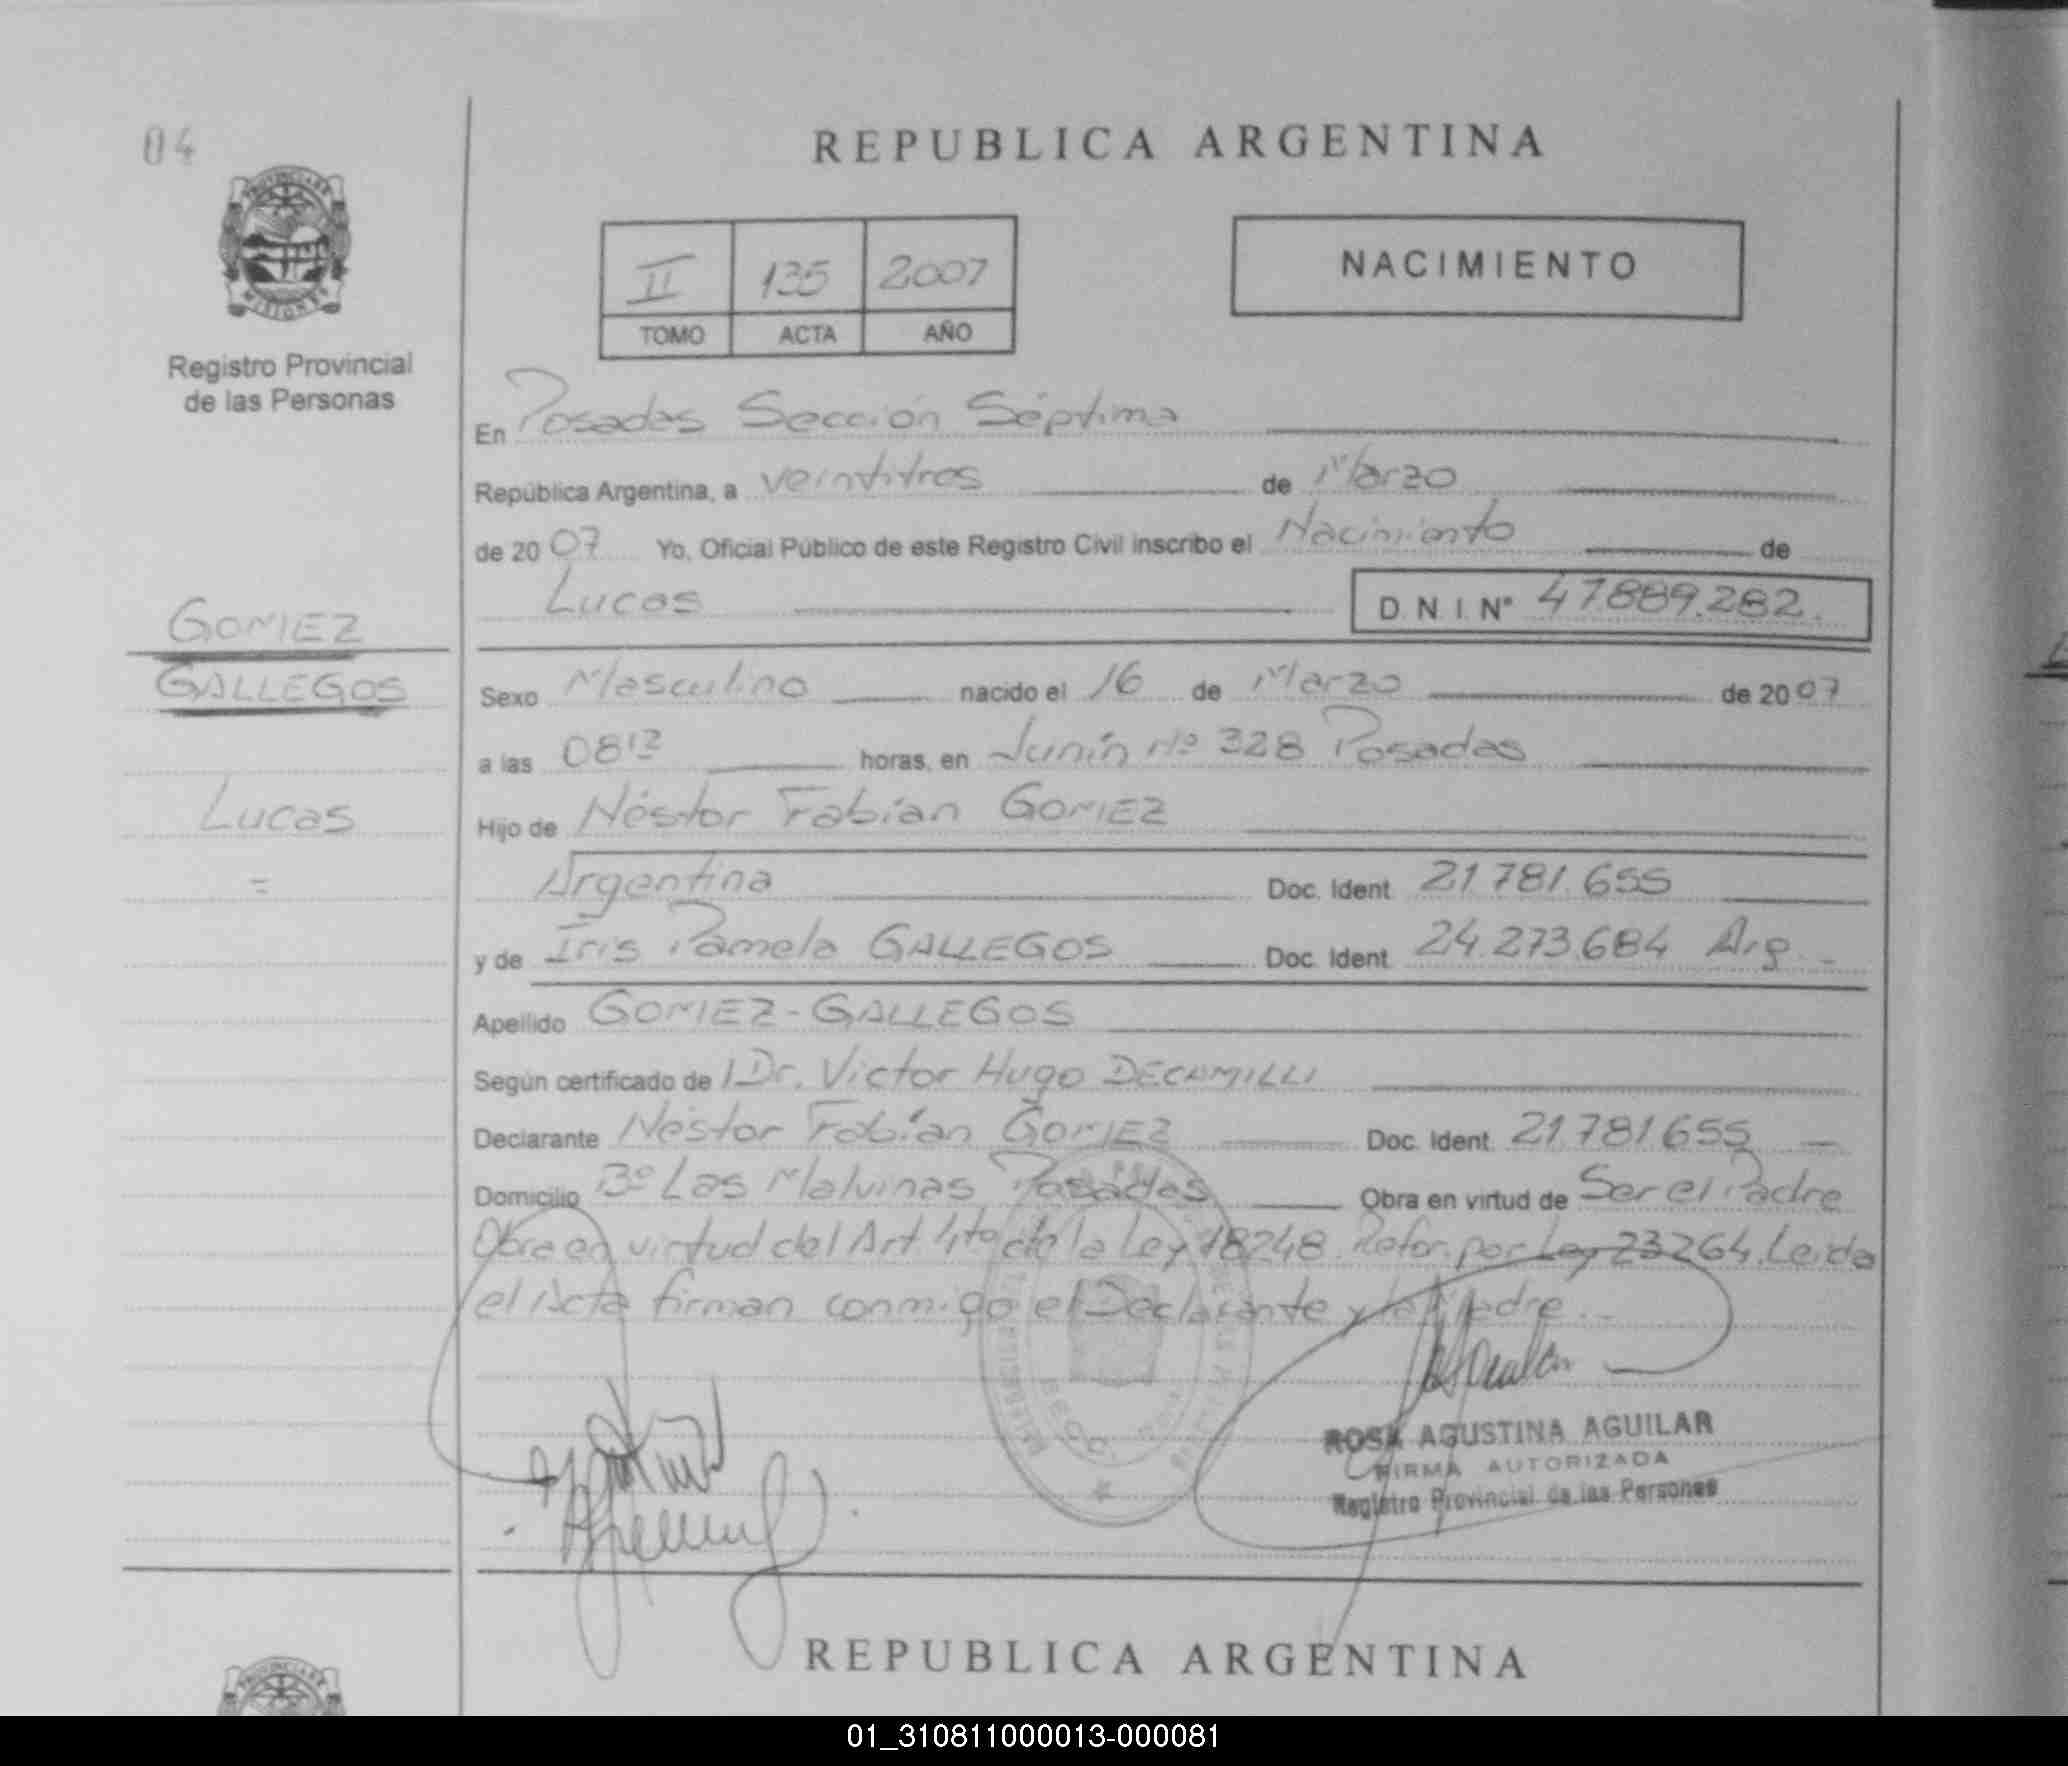 04
REPUBLICA ARGENTINA
PROVINCIA DE
MISIONES
Registro Provincial
de las Personas
II 135 2007
TOMO ACTA AÑO
NACIMIENTO
En Posadas Sección Séptima
República Argentina, a veintitres de Marzo
de 2007 Yo, Oficial Público de este Registro Civil inscribo el Nacimiento de
Lucas D.N.I. Nº 47889.282.
GOMEZ
GALLEGOS
Lucas
=
Sexo Masculino nacido el 16 de Marzo de 2007
a las 08 12 horas, en Junín Nº 328 Posadas
Hijo de Néstor Fabían GOMEZ
Argentina Doc. Ident. 21.781.655
y de Iris Pamela GALLEGOS Doc. Ident. 24.273.684 Arg.
Apellido GOMEZ-GALLEGOS
Según certificado de Dr. Victor Hugo DECAMILLI
Declarante Néstor Fabían GOMEZ Doc. Ident. 21.781.655
Domicilio Bº Las Malvinas Posadas Obra en virtud de Ser el Padre
Obra en virtud del Art 4to de la Ley 18248. Refor. por Ley 23264. Leida
el Acta firman conmigo el Declarante y la Madre.
ROSA AGUSTINA AGUILAR
FIRMA AUTORIZADA
Registro Provincial de las Personas
REPUBLICA ARGENTINA
PROVINCIA DE
01_310811000013-000081